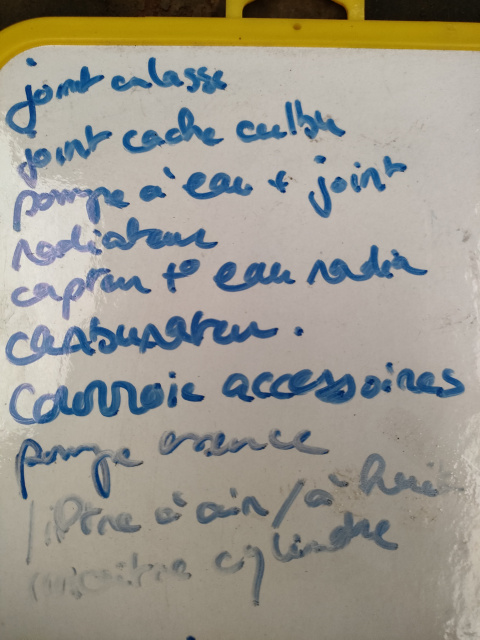 joint culasse
joint cache culbu
pompe à eau + joint
radiateur
capteur t° eau radia
carburateur.
courroie accessoires
pompe essence
filtre à air / à huile
maître cylindre